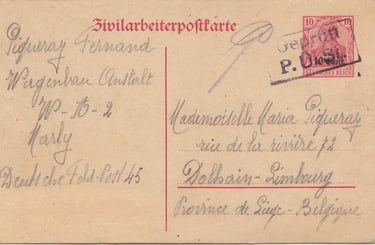 Zivilarbeiterpostkarte
Piqueray Fernand
Wagenbau Anstalt
W-A-2
Marly
Deutsche Feld-Post 45
10 10
10 Cent.
DEUTSCHES REICH
Geprüft
P.Ü.St.
Mademoiselle Maria Piqueray
rue de la rivière 72
Dolhain-Limbourg
Province de Liège - Belgique